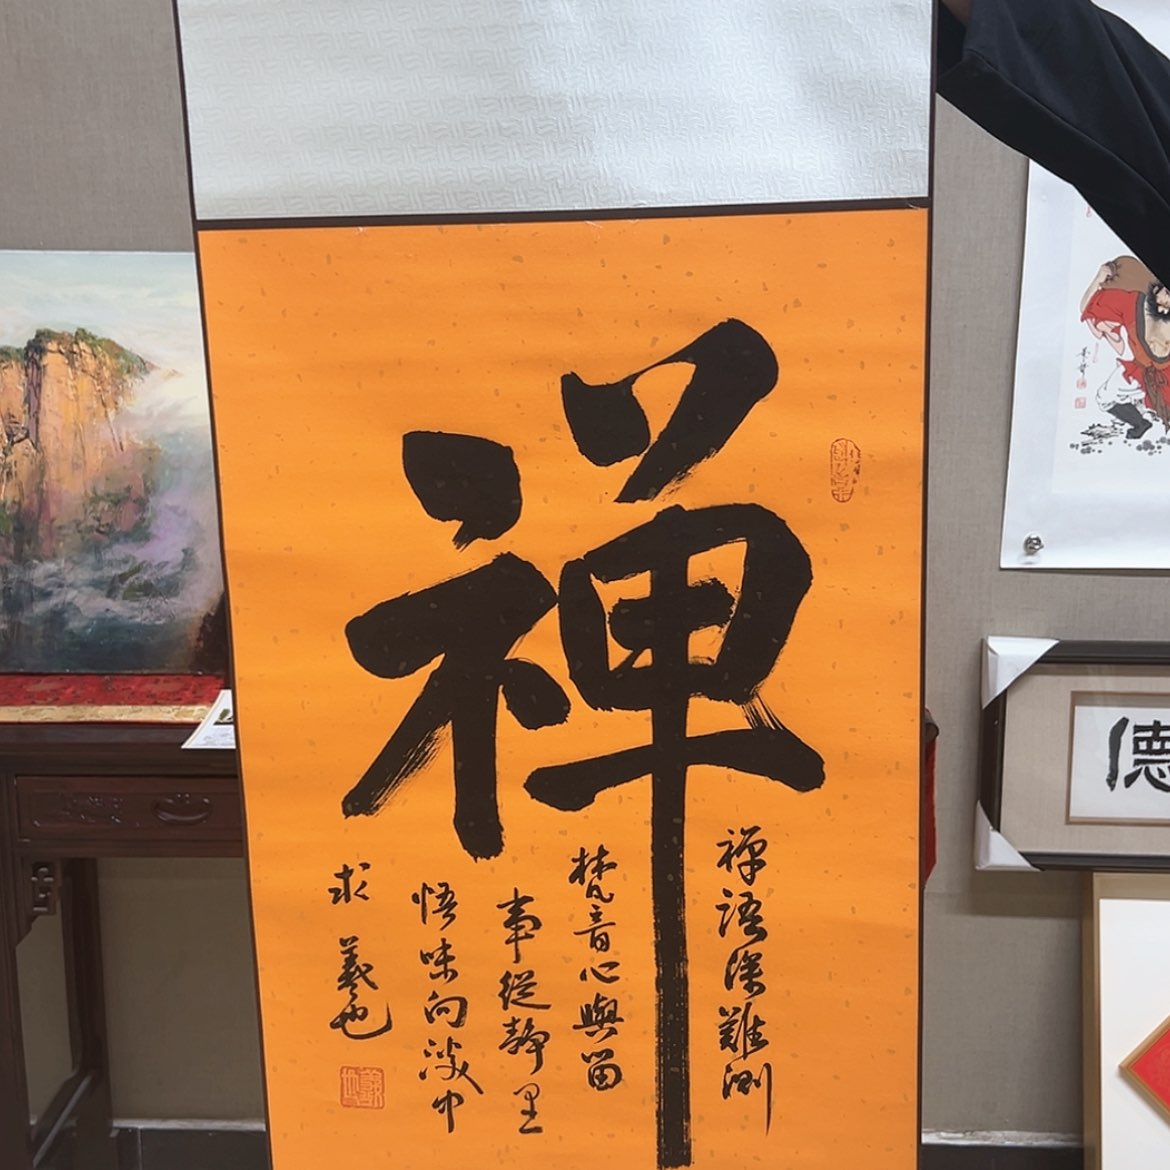 禅
禅語深難測
梵音心與留
事從靜里
悟味向淡中
求
羲也
德